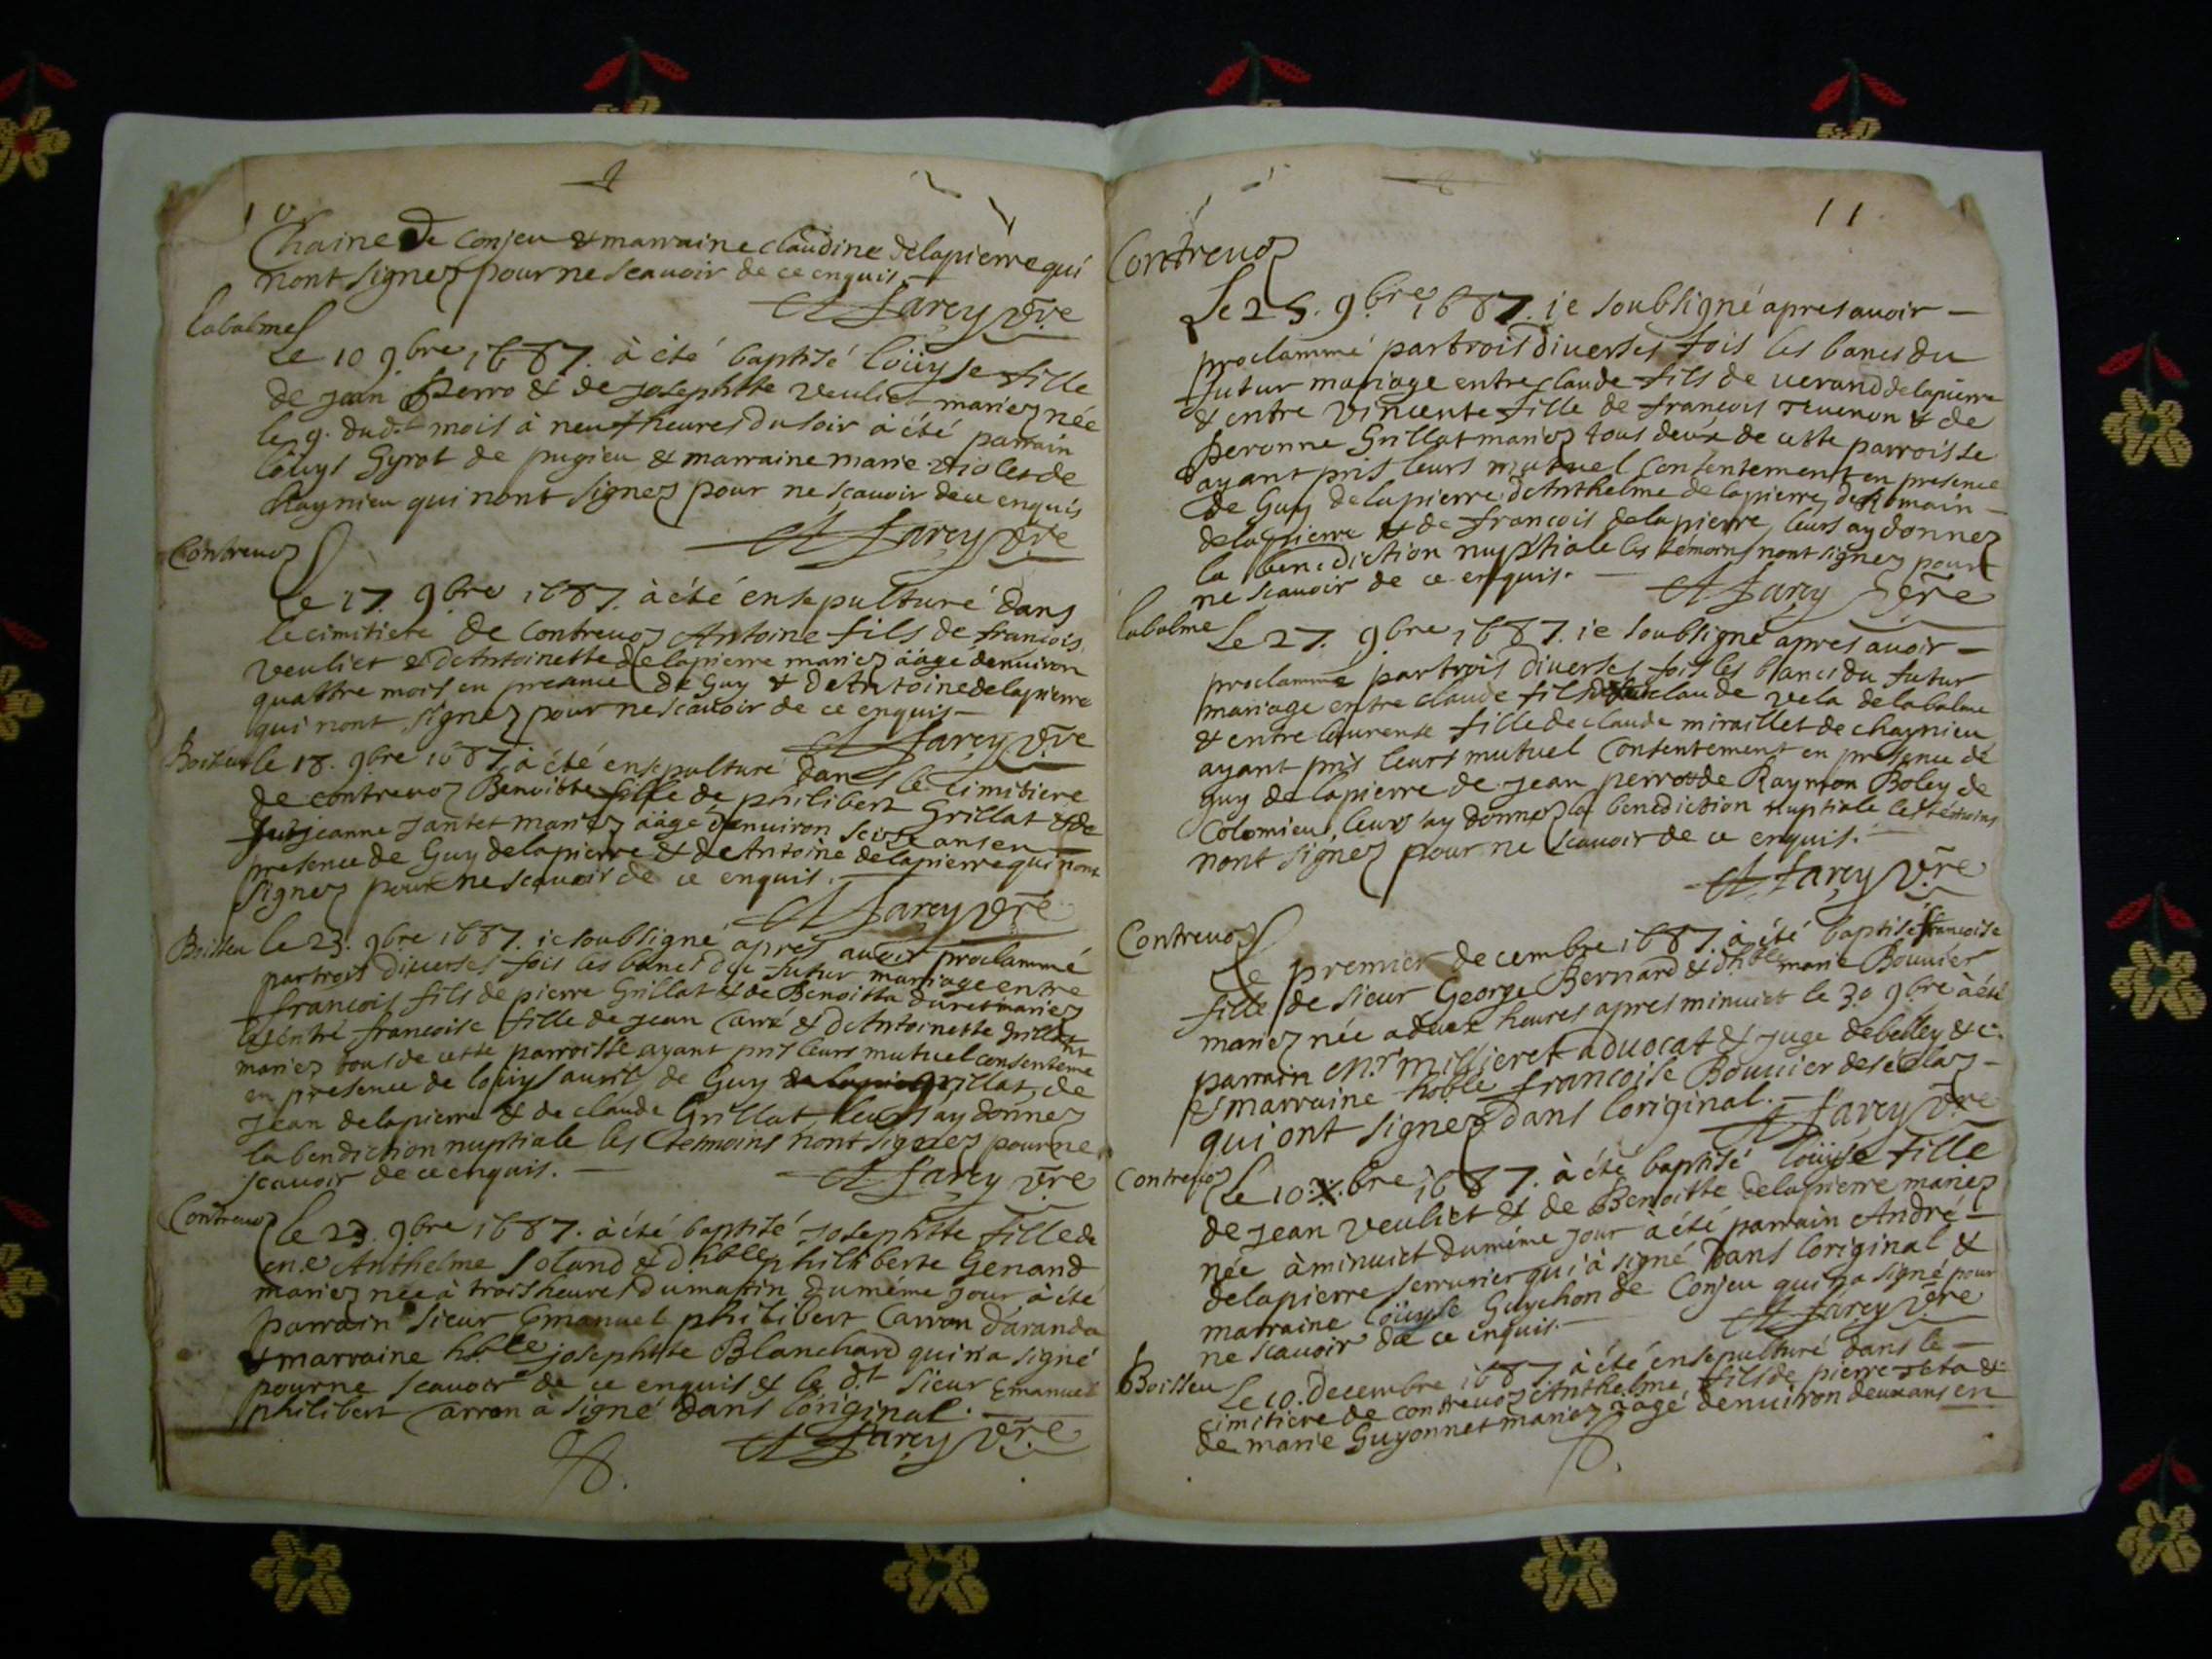 10
Chaine de Conjeu & marraine claudine delapierre qui
nont signez pour ne scauoir de ce enquis.
A farcy vre
labalme
Le 10 9bre 1687. à été baptisé loüyse fille
de jean perro & de josephte veuliet mariez née
le 9. dud.t mois à neuf heures du soir à été parrain
loüys Gyrot de pugieu & marraine marie violet de
Chaynieu qui nont signez pour ne scauoir de ce enquis
A farcy vre
Contreuoz
Le 17. 9bre 1687. à été ensepulturé dans
le cimitiere de contreuoz Antoine fils de francois
veuliet & dAntoinette delapierre mariez aâgé denuiron
quattre mois en presence de Guy & dAntoine delapierre
qui nont signez pour ne scauoir de ce enquis
A farcy vre
Boisseu le 18. 9bre 1687 à été ensepulturé dans le cimitiere
de contreuoz Benoitte fille de philibert Grillat & de
jeanne jantet mariez aâgé denuiron seize ans en
presence de Guy delapierre & de Antoine delapierre qui nont
signez pour ne scauoir de ce enquis.
A farcy vre
Boisseu le 23. 9bre 1687. ie soubsigné apres auoir proclammé
par trois diuerses fois les bancs du futur mariage entre
francois fils de pierre Grillat & de Benoitta duret mariez
& entre francoise fille de jean carré & dAntoinette Grillat
mariez tous de cette parroisse ayant pris leurs mutuel consenteme
en presence de loüys auril, de Guy Grillat, de
jean delapierre & de claude Grillat, leurs ay donnez
la bendiction nuptiale les temoins nont signez pour ne
scauoir de ce enquis.
A farcy vre
Contreuoz
le 23. 9bre 1687. à été baptisé josephtte fille de
m.e Anthelme soland & d. hble philiberte Genand
mariez née à trois heures du matin du méme jour à été
parrain sieur Emanuel philibert Carron daranda
& marraine hble josephte Blanchard qui n'a signé
pour ne scauoir de ce enquis & le d.t sieur Emanuel
philibert Carron à signé dans loriginal.
A farcy vre
11
Contreuoz
Le 25. 9bre 1687. ie soubsigné apres auoir
proclammé par trois diuerses fois les bancs du
futur mariage entre claude fils de uerand delapierre
& entre vincente fille de francois Teuenon & de
peronne Grillat mariez tous deux de cette parroisse
ayant pris leurs mutuel consentement en presence
de Guy delapierre, dAnthelme delapierre, de Romain
delapierre & de francois delapierre, leurs ay donnez
la benediction nuptiale les témoins nont signez pour
ne scauoir de ce enquis.
A farcy vre
labalme
Le 27. 9bre 1687. ie soubsigné apres auoir
proclammé par trois diuerses fois les bancs du futur
mariage entre claude fils claude vela de labalme
& entre laurense fille de claude miraillet de chaynieu
ayant pris leurs mutuel consentement en presence de
Guy delapierre de jean perro & de Raymon Boley de
Colomieu, leurs ay donnez la benediction nuptiale les témoins
nont signez pour ne scauoir de ce enquis.
A farcy vre
Contreuoz
Le premier decembre 1687. à été baptisé francoise
fille de sieur George Bernard & d hble marie Bouuier
mariez née a deux heures apres minuict le 30 9bre à été
parrain m.r millieret aduocat & juge de belley &c.
& marraine hoble francoise Bouuier
qui ont signez dans loriginal.
A farcy vre
Contreuoz
Le 10. bre 1687. à été baptisé loüyse fille
de jean veuliet & de Benoitte delapierre mariez
née à minuict du méme jour à été parrain André
delapierre serrurier qui à signé dans loriginal &
marraine loüyse Guychon de Conjeu qui n'a signé pour
ne scauoir de ce enquis.
A farcy vre
Boisseu
Le 10. Decembre 1687 à été ensepulturé dans le
cimitiere de contreuoz Anthelme fils de pierre &
de marie Guyonnet mariez aâgé denuiron deux ans en